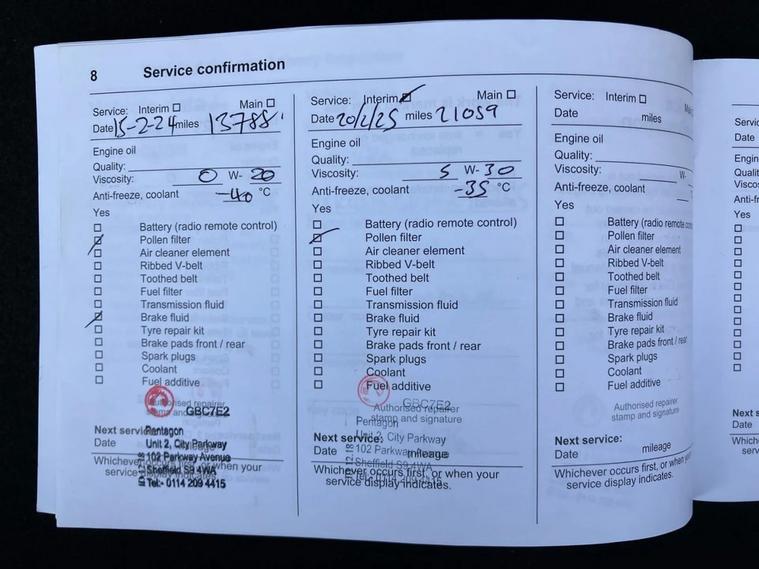 8 Service confirmation
Service: Interim ☐ Main ☐
Date 15-2-24 miles 13788
Engine oil
Quality:
Viscosity: 0 W- 20
Anti-freeze, coolant -40 °C
Yes
Battery (radio remote control)
Pollen filter
Air cleaner element
Ribbed V-belt
Toothed belt
Fuel filter
Transmission fluid
Brake fluid
Tyre repair kit
Brake pads front / rear
Spark plugs
Coolant
Fuel additive
Authorised repairer
stamp and
GBC7E2
Next service:
Date
Pentagon
Unit 2, City Parkway
102 Parkway Avenue
Sheffield S9 4WA
Tel:- 0114 209 4415
Whichever occurs first, or when your
service
Service: Interim ☑ Main ☐
Date 20/2/25 miles 21059
Engine oil
Quality:
Viscosity: 5 W- 30
Anti-freeze, coolant -35 °C
Yes
Battery (radio remote control)
Pollen filter
Air cleaner element
Ribbed V-belt
Toothed belt
Fuel filter
Transmission fluid
Brake fluid
Tyre repair kit
Brake pads front / rear
Spark plugs
Coolant
Fuel additive
GBC7E2
Authorised repairer
stamp and signature
Pentagon
Unit 2, City Parkway
Next service:
102 Parkway
Date mileage
Sheffield S9 4WA
Whichever occurs first, or when your
service display indicates.
Service: Interim ☐
Date miles
Engine oil
Quality:
Viscosity: W-
Anti-freeze, coolant
Yes
Battery (radio remote
Pollen filter
Air cleaner element
Ribbed V-belt
Toothed belt
Fuel filter
Transmission fluid
Brake fluid
Tyre repair kit
Brake pads front / rear
Spark plugs
Coolant
Fuel additive
Authorised repairer
stamp and signature
Next service:
Date mileage
Whichever occurs first, or when
service display indicates.
Date
Yes
Next s
Date